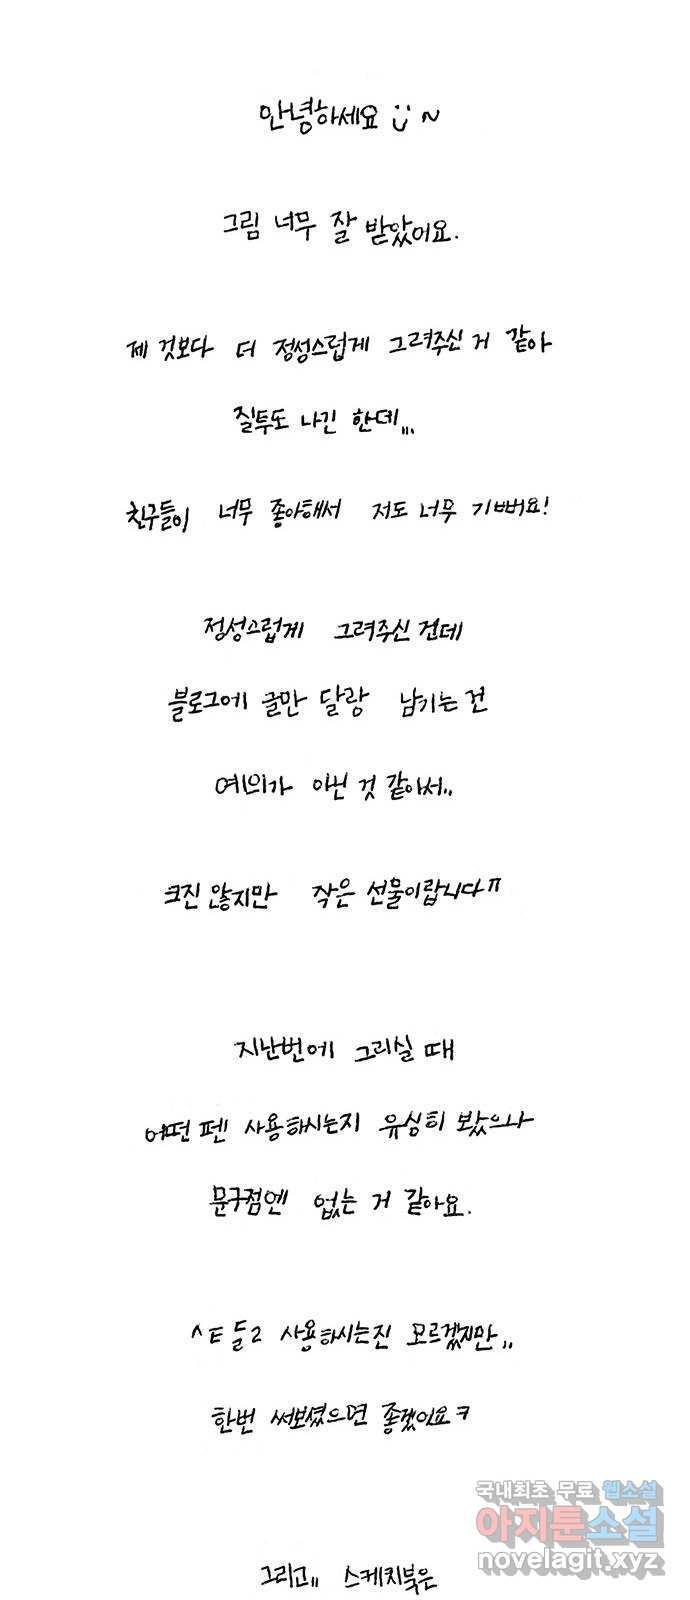 안녕하세요 ~
그림 너무 잘 받았어요.
제 것보다 더 정성스럽게 그려주신 거 같아
질투도 나긴 한데,,,
친구들이 너무 좋아해서 저도 너무 기뻐요!
정성스럽게 그려주신 건데
블로그에 글만 달랑 남기는 건
예의가 아닌 것 같아서..
크진 않지만 작은 선물이랍니다ㅠ
지난번에 그리실 때
어떤 펜 사용하시는지 유심히 봤으나
문구점엔 없는 거 같아요.
사용하시는진 모르겠지만,,
한번 써보셨으면 좋겠어요ㅋ
그리고,, 스케치북은
국내최초 무료 웹소설
아지툰소설
novelagit.xyz